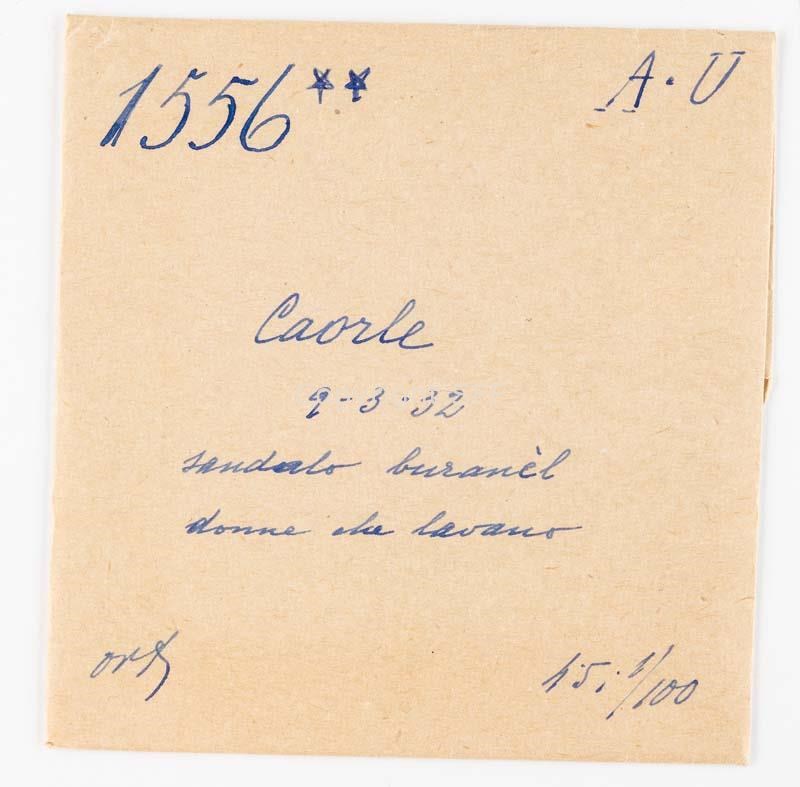 1556** A·U
Caorle
9-3-32
sandalo buranèl
donne che lavano
ort 1/100